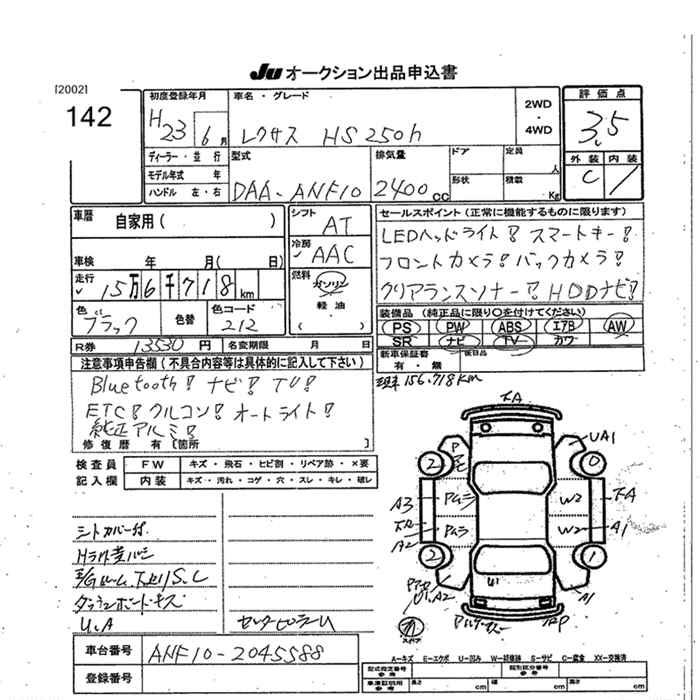 Ju オークション出品申込書
[2002]
142
初度登録年月
H23 6月
ディーラー・並行
モデル年式 年
ハンドル 左・右
車名・グレード
レクサス HS250h
型式
DAA-ANF10
排気量
2400cc
ドア
形状
定員
人
積載
Kg
2WD
・
4WD
評価点
3.5
外装 内装
C
車歴
自家用( )
車検 年 月( 日)
走行
15万6千718km
色
ブラック
色替
色コード
212
R券 13530円 名変期限 月 日
シフト
AT
冷房
AAC
燃料
ガソリン
軽油
( )
セールスポイント(正常に機能するものに限ります)
LEDヘッドライト! スマートキー!
フロントカメラ! バックカメラ!
クリアランスソナー! HDDナビ!
装備品(純正品に限り○を付けてください)
PS PW ABS エアB AW
SR ナビ TV カワ
新車保証書
有・無
後日品
156,718km
注意事項申告欄(不具合内容等は具体的に記入して下さい)
Bluetooth! ナビ! TV!
ETC! クルコン! オートライト!
純正アルミ!
修復歴 有[箇所 ]
検査員
記入欄
FW キズ・飛石・ヒビ割・リペア跡・×要
内装 キズ・汚れ・コゲ・穴・スレ・キレ・破レ
シートカバー付
S.C
ダッシュボード
U.A
A
UA1
P
2
0
A3
W2
A
A2
W2
A1
2
1
U1
A2
A1
スペア
車台番号 ANF10-2045588
登録番号
A-キズ E-エクボ U-凹み W-補修跡 S-サビ C-腐食 XX-交換済
型式指定番号
参考
類別区分番号
参考
車庫証明用
参考
長さ cm
幅 cm
高さ cm